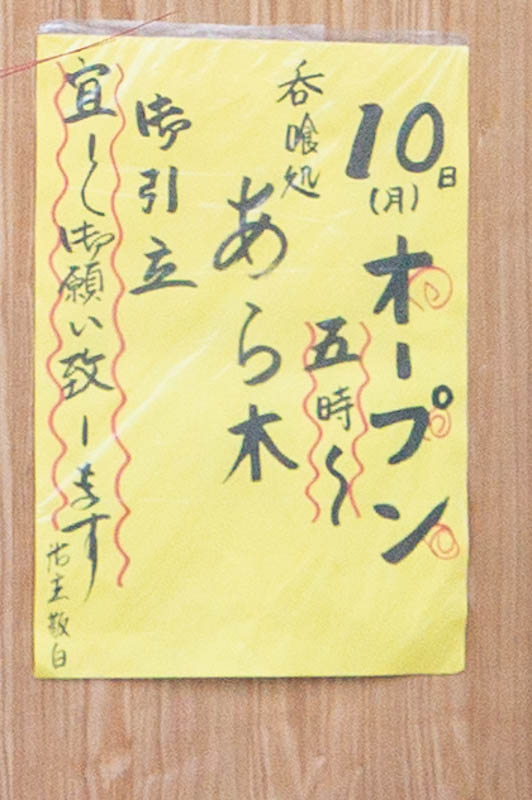 10日(月)オープン
五時〜
呑喰処
あら木
御引立
宜しく御願い致します
店主敬白